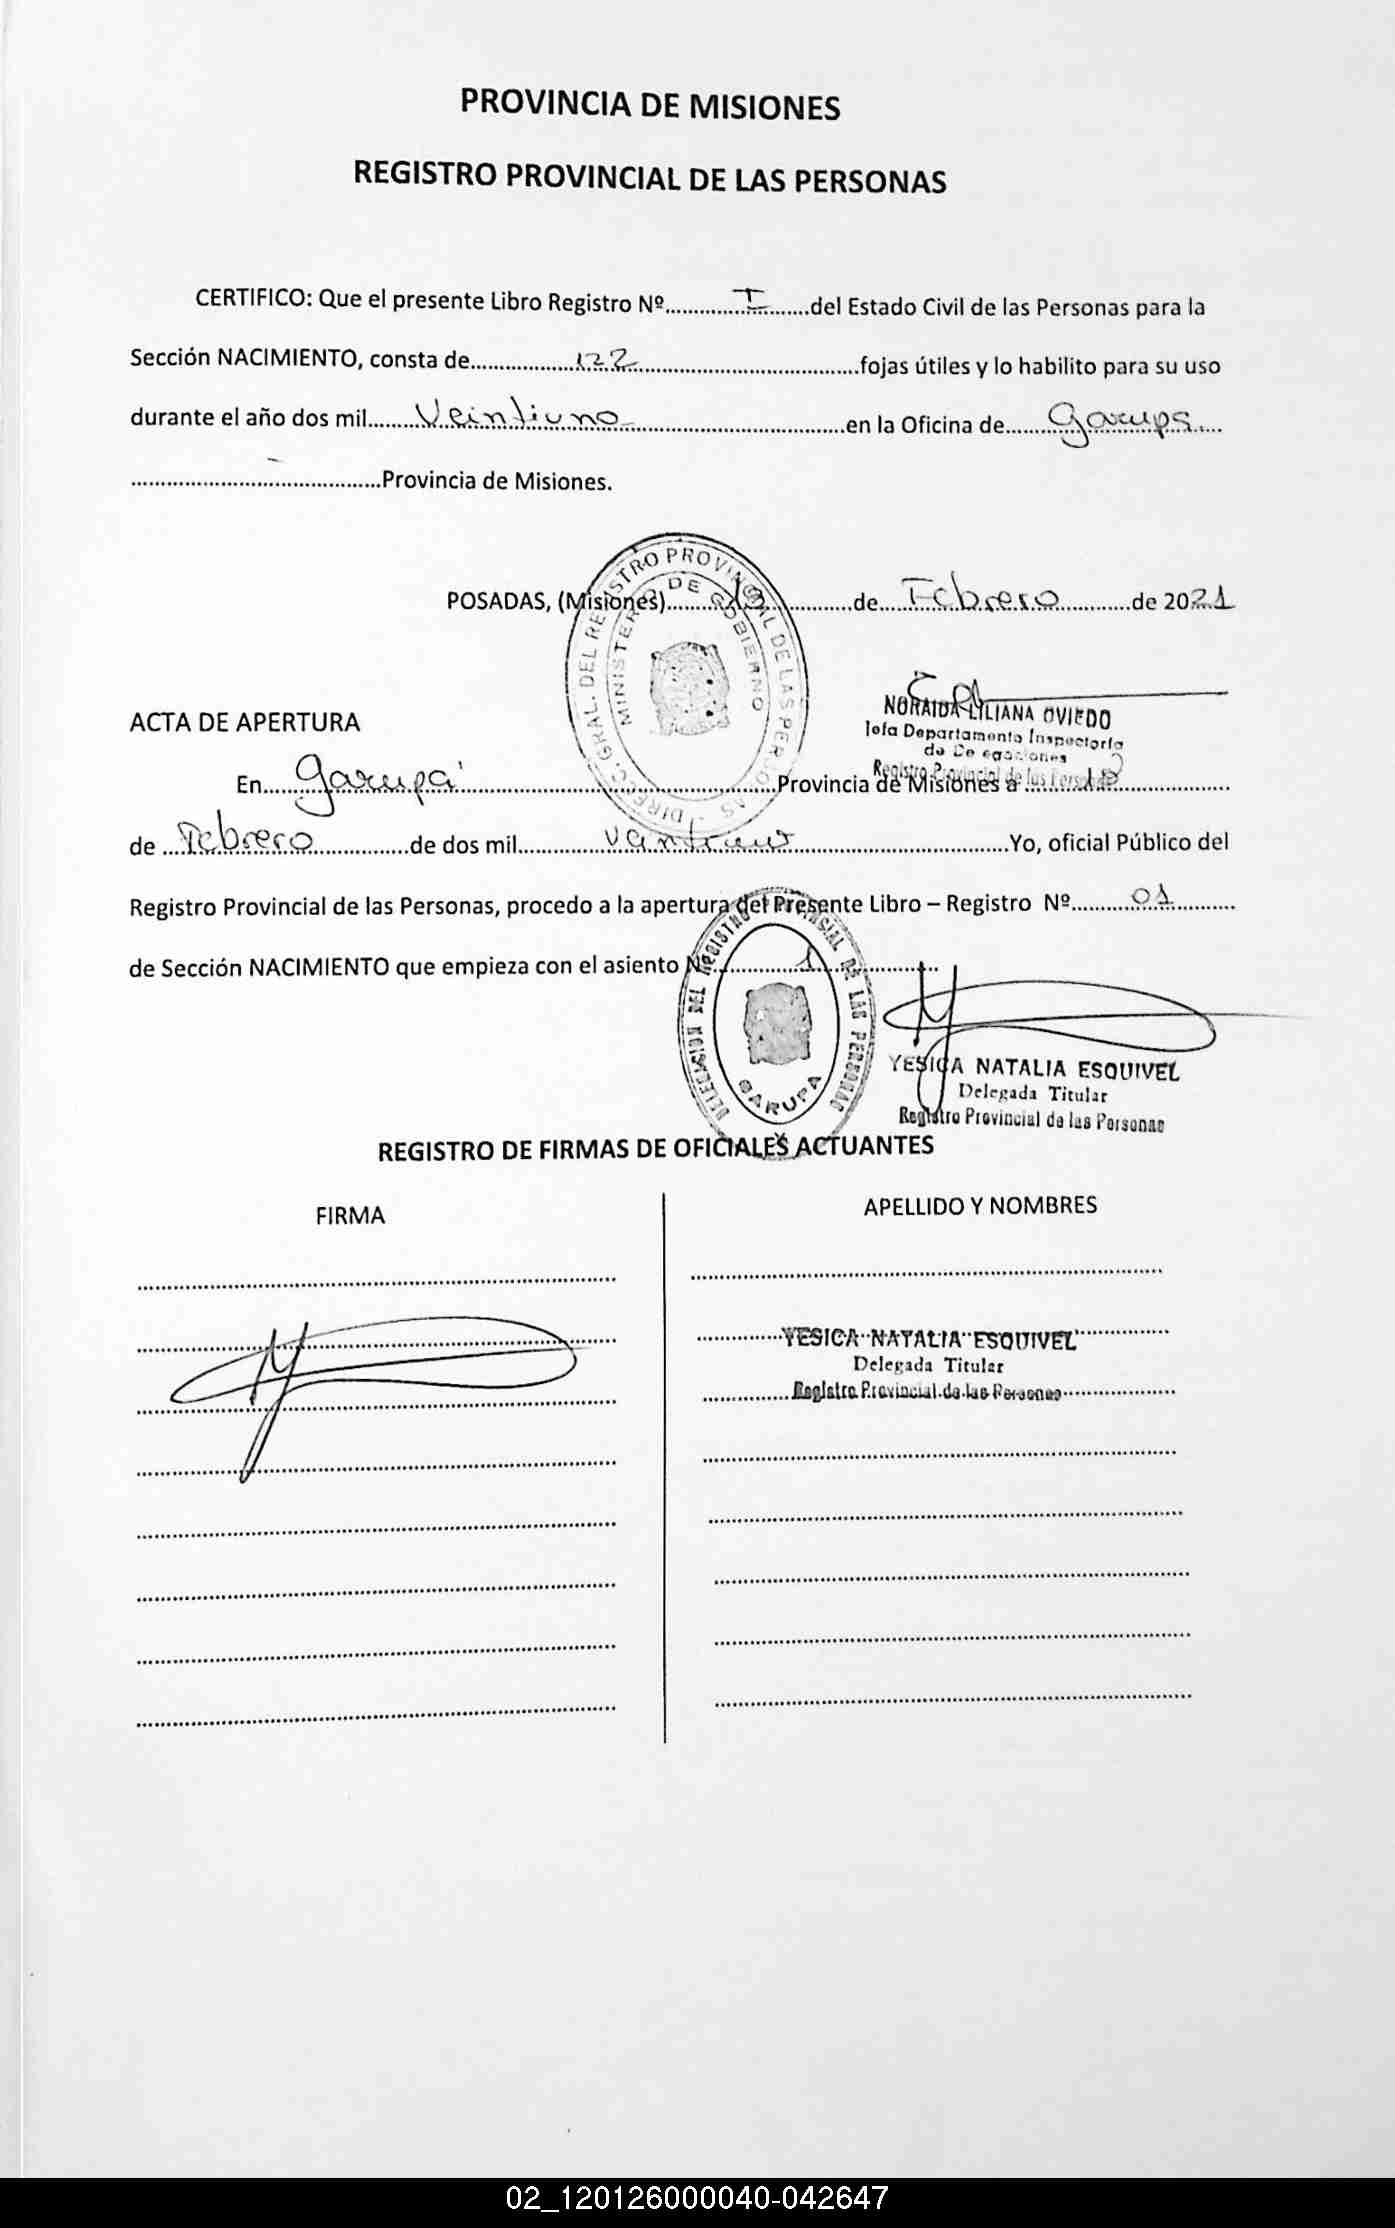 PROVINCIA DE MISIONES
REGISTRO PROVINCIAL DE LAS PERSONAS
CERTIFICO: Que el presente Libro Registro Nº.............I.......del Estado Civil de las Personas para la
Sección NACIMIENTO, consta de..................122.......................................fojas útiles y lo habilito para su uso
durante el año dos mil........Veintiuno......................................en la Oficina de.......Garupá.....
..........................................Provincia de Misiones.
DIREC. GRAL. DEL REGISTRO PROVINCIAL DE LAS PERSONAS
MINISTERIO DE GOBIERNO
POSADAS, (Misiones)......................de....Febrero............de 2021
NORAIDA LILIANA OVIEDO
Jefa Departamento Inspectoría
de Delegaciones
Registro Provincial de las Personas
ACTA DE APERTURA
En......Garupá......................................................Provincia de Misiones a ..............................
de ...Febrero................de dos mil...............veintiuno....................................Yo, oficial Público del
Registro Provincial de las Personas, procedo a la apertura del Presente Libro – Registro Nº..........01...........
de Sección NACIMIENTO que empieza con el asiento Nº..............1.....................
DELEGACION DEL REGISTRO PROVINCIAL DE LAS PERSONAS
GARUPA
YESICA NATALIA ESQUIVEL
Delegada Titular
Registro Provincial de las Personas
REGISTRO DE FIRMAS DE OFICIALES ACTUANTES
FIRMA
APELLIDO Y NOMBRES
YESICA NATALIA ESQUIVEL
Delegada Titular
Registro Provincial de las Personas
02_120126000040-042647